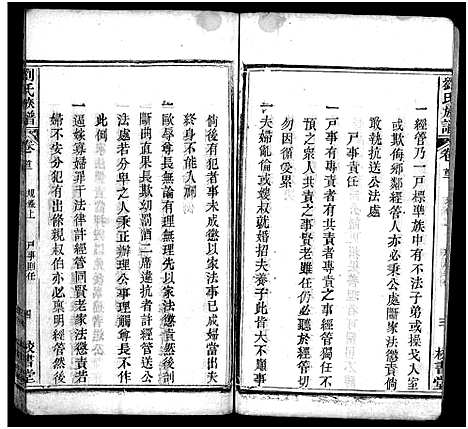 劉氏族譜
卷首
三
校書堂
一經管乃一戶標準族中有不法子弟或操戈大人
或欺侮師鄰經管人亦必秉公處斷家法懲責倘
敢抗拒送公法處
戶事責任
一戶事有專責者有共責者專責之事經管獨任不
預之衆人共責之事賢老弟任仍必聽於經管切
勿因循受累
一夫婦亂倫或嫂叔就婚招夫養子此皆大不順事
倘後有犯者事未成懲以家法事已成婦當出有
終身不能入祠
一歐辱尊長無論有理無理先以家法懲責然後剖
斷曲直果長欺幼罰酒二席違抗者計經管送公
法處若卑幼秉正辦理公事理觸尊長者不在
此例
一逼嫁孀婦罪干法律計經管同賢老家法懲責若
婦不安於室有出條親叔伯亦必稟明經管然後
劉氏族譜
卷首
規恙上
戶事則任
四
校書堂